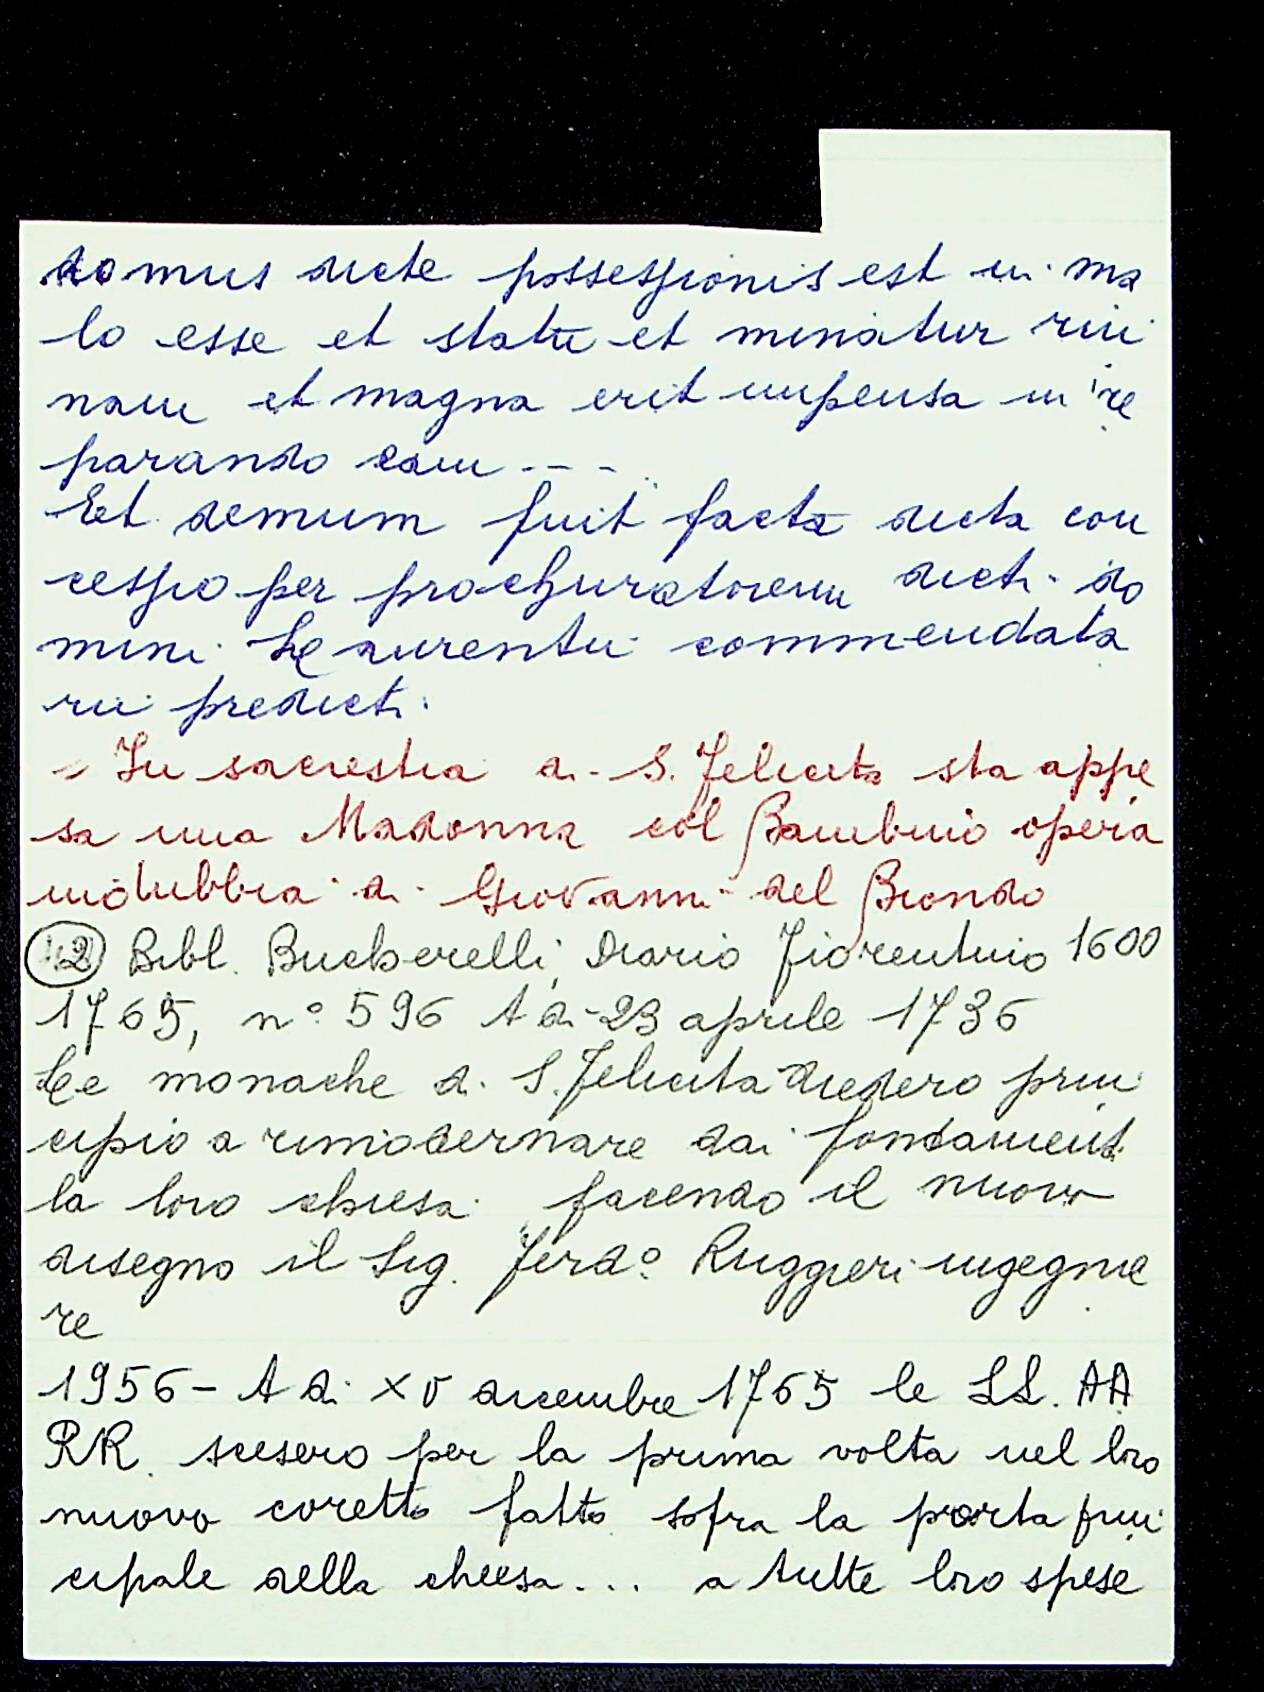 domus dicte possessionis est in ma
lo esse et statu et minatur rui
nam et magna erit impensa in re
parando eam ---
Et demum fuit facta dicta con
cessio per prochuratorem dicti do
mini Laurentii commendata
rii predicti.
= In sacrestia di S. Felicita sta appe
sa una Madonna col Bambino opera
indubbia di Giovanni del Biondo
Bibl. Bucherelli, Diario Fiorentino 1600
1765, n° 596 A di 23 aprile 1736
Le monache di S. Felicita diedero prin
cipio a rimodernare dai fondamenti
la loro chiesa facendo il nuovo
disegno il Sig. Ferd° Ruggieri ingegne
re
1956 - A di XV dicembre 1765 le LL. AA
RR. scesero per la prima volta nel loro
nuovo coretto fatto sopra la porta prin
cipale della chiesa... a tutte loro spese